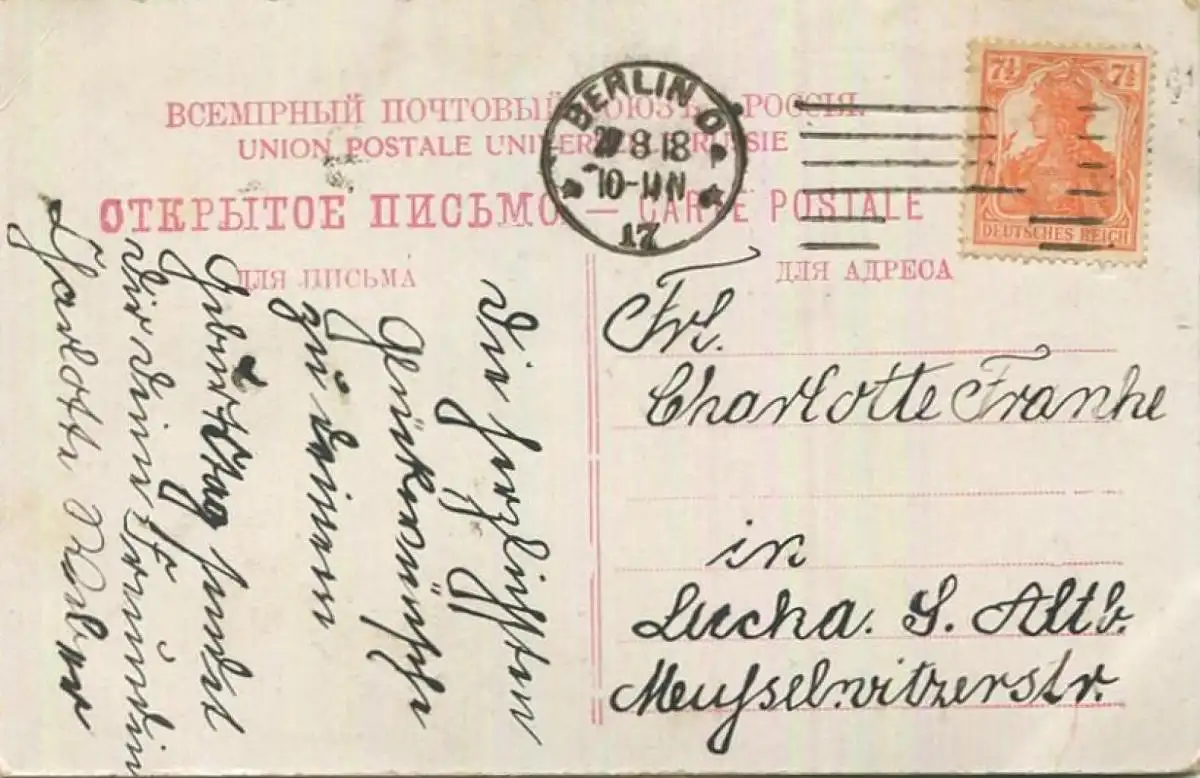 ВСЕМІРНЫЙ ПОЧТОВЫЙ СОЮЗЪ. РОССІЯ.
UNION POSTALE UNIVERSELLE RUSSIE
ОТКРЫТОЕ ПИСЬМО — CARTE POSTALE
ДЛЯ ПИСЬМА
ДЛЯ АДРЕСА
BERLIN O
8 18
10-11 N
17
7½ 7½
DEUTSCHES REICH
Die herzlichsten
Glückwünsche
zu deinem
Geburtstag sendet
Dir deine Freundin
Charlotte
Frl.
Charlotte Franke
in
Lucka. S. Altb.
Meuselwitzerstr.